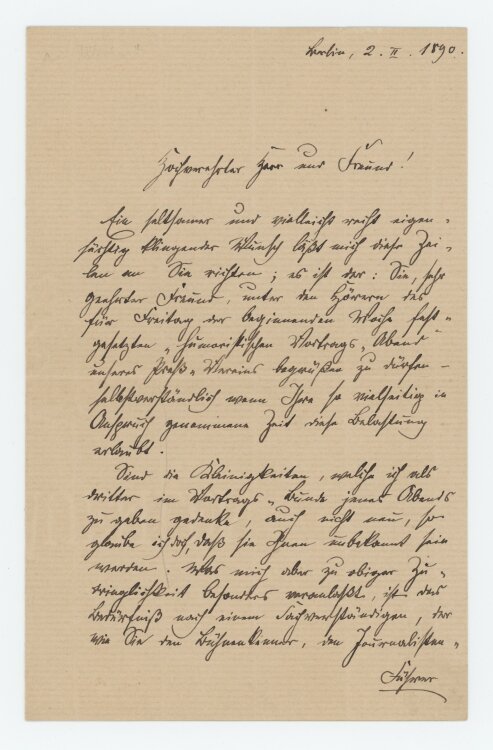 Berlin, 2. II. 1890.
Hochverehrter Herr und Freund!
Ein seltsamer und vielleicht recht eigen-
süchtig klingender Wunsch läßt mich diese Zei-
len an Sie richten; es ist der: Sie, sehr
geehrter Freund, unter den Hörern des
für Freitag der beginnenden Woche fest-
gesetzten "humoristischen Vortrags-Abend"
unseres Preß-Vereins begrüßen zu dürfen –
selbstverständlich wenn Ihre so vielseitig in
Anspruch genommene Zeit diese Belastung
erlaubt.
Sind die Kleinigkeiten, welche ich als
dritter im Vortrags-Bunde jenes Abends
zu geben gedenke, auch nicht neu, so
glaube ich doch, daß sie Ihnen unbekannt sein
werden. Was mich aber zu obiger Zu-
dringlichkeit besonders veranlaßt, ist das
Bedürfniß nach einem Sachverständigen, der
wie Sie den Bühnenkenner, den Journalisten-
Führer